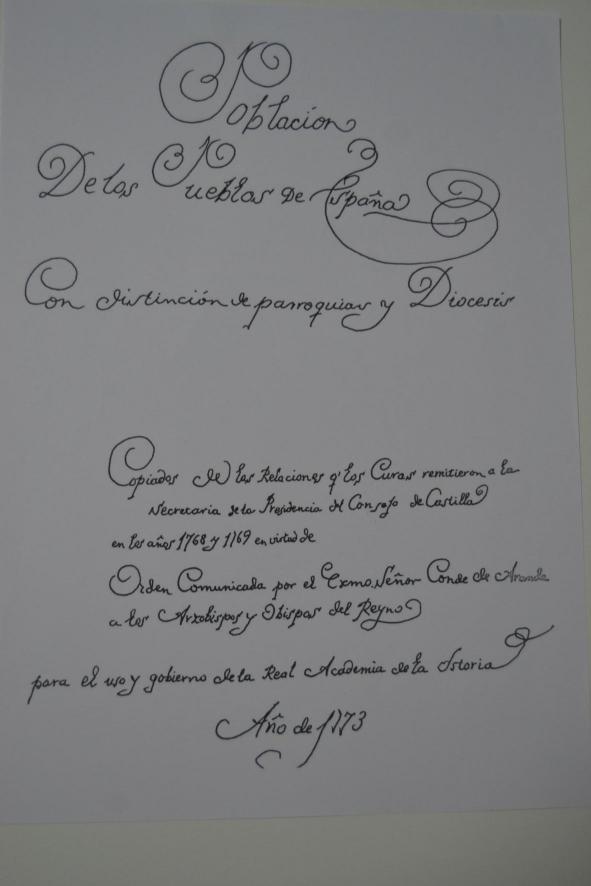 Poblacion
De los Pueblos De España
Con distinción de parroquias y Diocesis
Copiados de las Relaciones q' los Curas remitieron a la
Secretaria de la Presidencia del Consejo de Castilla
en los años 1768 y 1769 en virtud de
Orden Comunicada por el Exmo. Señor Conde de Aranda
a los Arzobispos y Obispos del Reyno
para el uso y gobierno de la Real Academia de la Istoria
Año de 1773